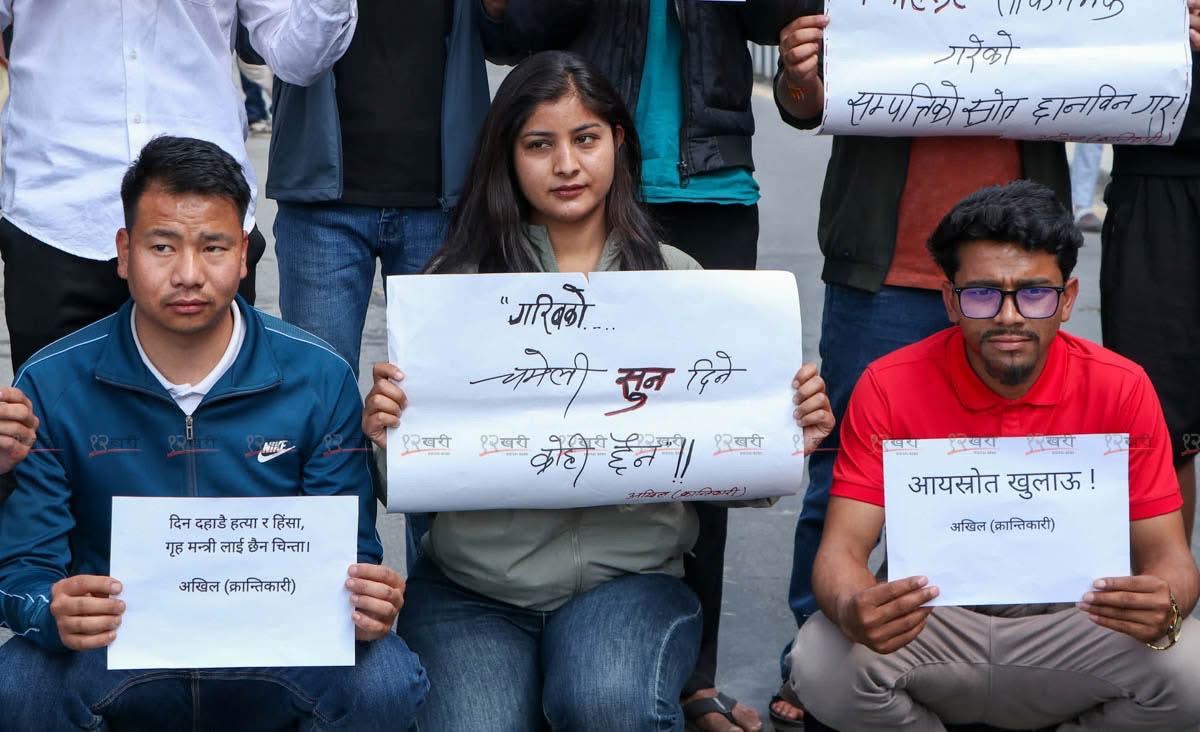 गरेको
सम्पत्तिको स्रोत छानविन गर!
अखिल (क्रान्तिकारी)
"गरिबको....
चमेली सुन दिने
कोही छैन"!!
अखिल (क्रान्तिकारी)
NIKE
दिन दहाडै हत्या र हिंसा,
गृह मन्त्री लाई छैन चिन्ता।
अखिल (क्रान्तिकारी)
आयस्रोत खुलाऊ !
अखिल (क्रान्तिकारी)
१२खरी १२खरी १२खरी १२खरी १२खरी १२खरी १२खरी १२खरी १२खरी १२खरी १२खरी १२खरी